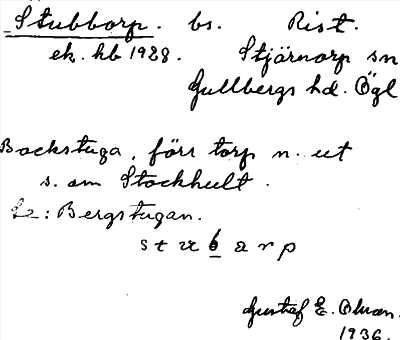 Stubborp. bs. Rist.
ek. hb 1928. Stjärnorp sn
Gullbergs hd. Ögl
Backstuga, förr torp n. ut
s. om Stockhult.
L2: Bergstugan.
stubarp
Gustaf E. Oman.
1936.